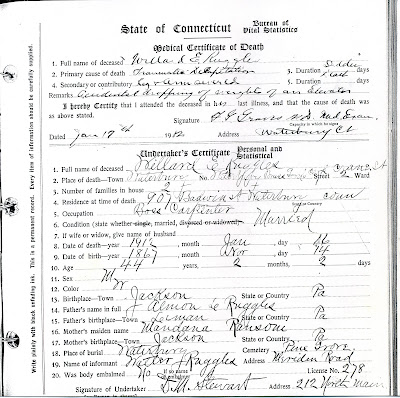 State of Connecticut
Bureau of Vital Statistics
Medical Certificate of Death
1 Full name of deceased Willard E Ruggles
2 Primary cause of death Traumatic Decapitation 3 Duration Sudden death days
4 Secondary or contributory 5 Duration days
Remarks Accidental dropping of weights of an Elevator
I hereby Certify that I attended the deceased in his last illness, and that the cause of death was as above stated.
M.D. Med Exam.
Capacity in which he signs
Dated Jan 17th 1912 Address Waterbury Ct
Undertaker's Certificate
Personal and Statistical
1 Full name of deceased Willard E Ruggles
2 Place of death—Town Waterbury No. Street Ward
3 Number of families in house 2
4 Residence at time of death 907 Waterbury Conn
5 Occupation Boss Carpenter
6 Condition (state whether single, married, divorced or widowed) Married
7 If wife or widow, give name of husband
8 Date of death—year 1912, month Jan, day 16
9 Date of birth—year 1867, month Nov, day 14
10 Age 44 years, 2 months, 2 days
11 Sex M
12 Color W
13 Birthplace—Town Jackson State or Country Pa
14 Father's name in full Almon L Ruggles
15 Father's birthplace—Town State or Country Pa
16 Mother's maiden name Mandana Ransom
17 Mother's birthplace—Town Jackson State or Country Pa
18 Place of burial Waterbury Cemetery Pine Grove
19 Name of informant Ruggles Address Meriden Road
20 Was body embalmed No If so name of embalmer License No. 278
Signature of Undertaker D.M. Stewart Address 212 North Main
Write plainly with black unfading ink. This is a permanent record. Every item of information should be carefully supplied.